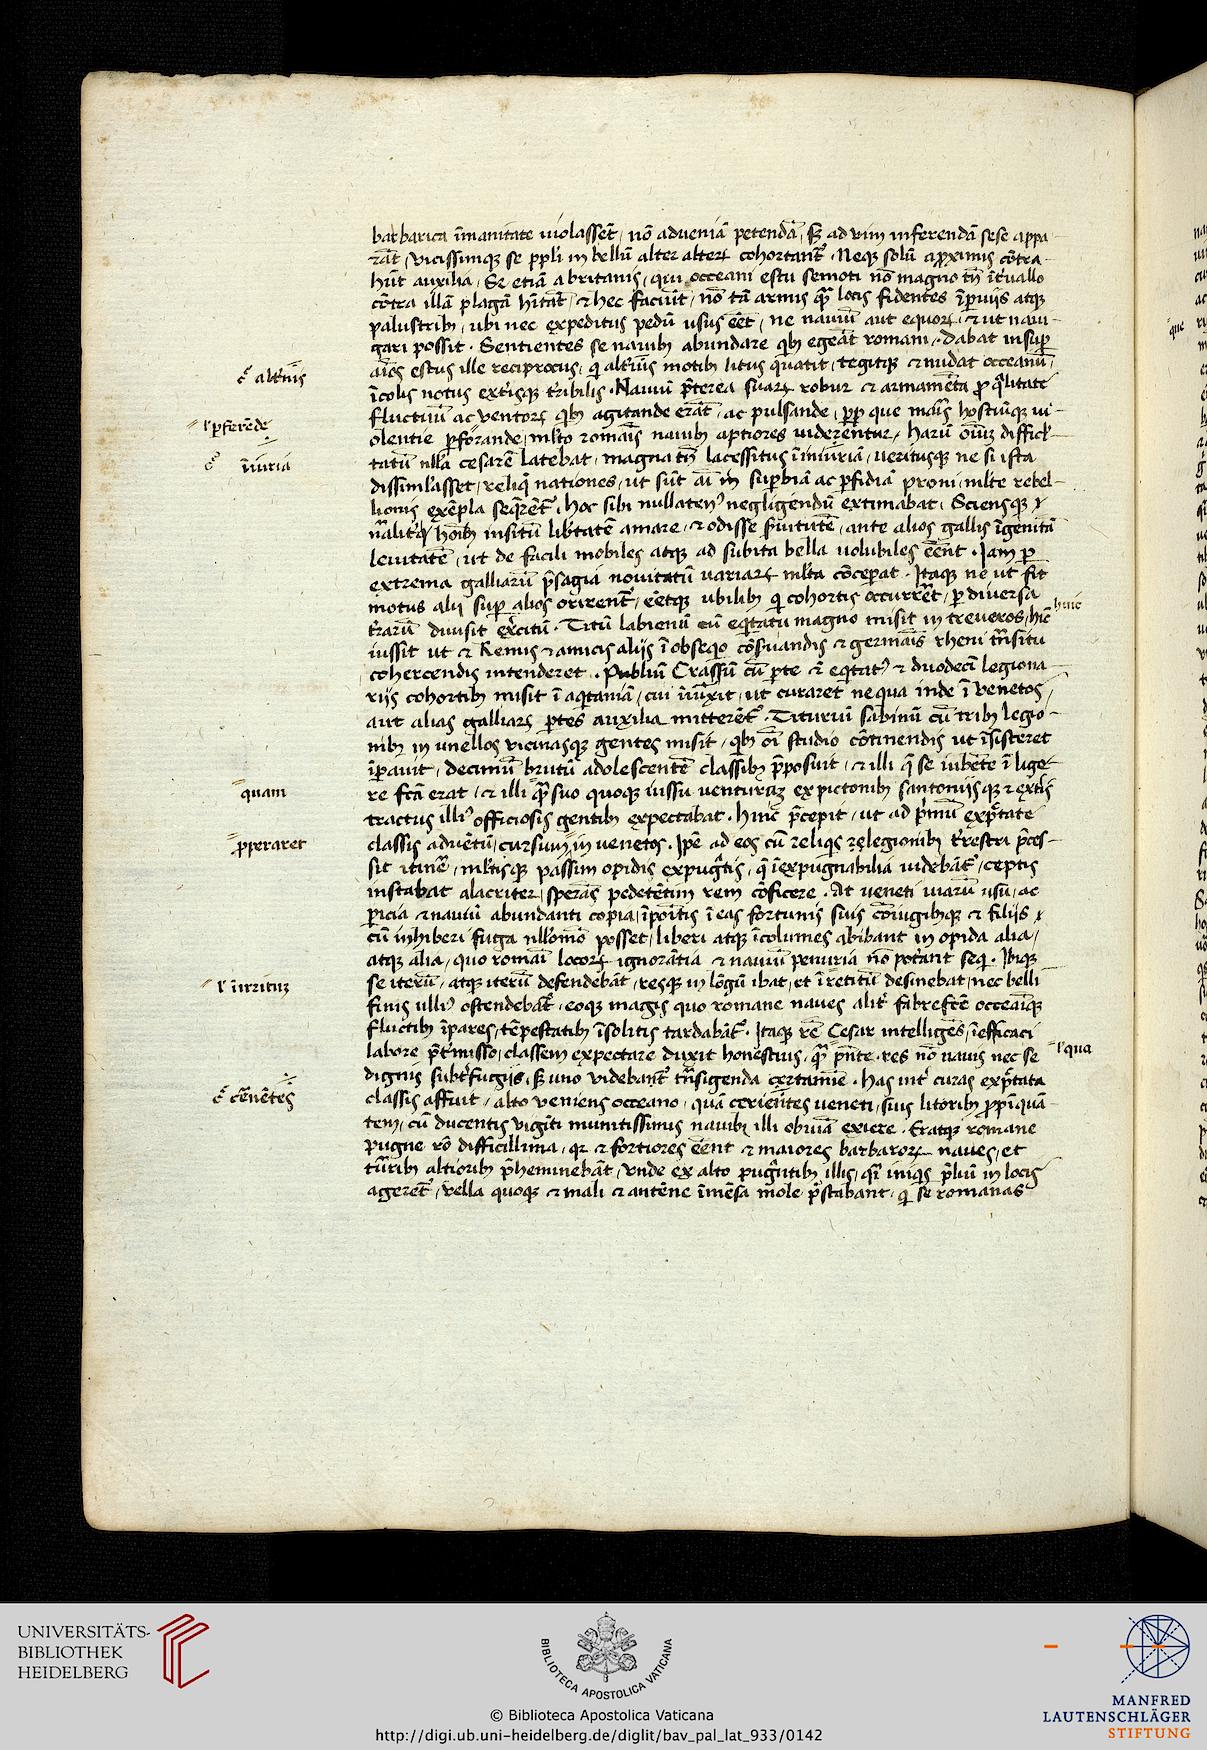 barbarica īmanitate violassēt, nō adveniā petendā, sƺ ad vim inferendā sese appa
rāt, vicissimqƺ se ppl'i in bellū alter alterꝝ cohortant᷑. Neqƺ solū aꝓximis cōtra-
hūt auxilia, Sƺ etiā a britanis, qui occeani estu semoti nō magno tn̄ īt'vallo
cōtra illā plagā hītāt, ⁊ hec faciūt, nō tā armis qͣ locis fidentes īpuijs atqƺ
palustribƺ, ubi nec expeditus pedū usus eēt, ne naviū aut equoꝝ, ⁊ ut navi-
gari possit. Sentientes se navibƺ abundare qbƺ egeāt romani, dabat insuꝑ
aīos estus ille reciprocus, qi alt'nis motibƺ litus quatit, tegitqƺ ⁊ nudat occeanū,
c̄ alt'niis
īcolis notus ext'isqƺ t'ribilis. Naviū p̄terea suaꝝ robur ⁊ armamēta ꝓ qͣlitate
fluctuū ac ventoꝝ qbƺ agitande erāt, ac pulsande, ꝓp que maris hostiūqƺ vi-
l' ꝑferēde
olentie ꝑforande, ml'to romāis navibƺ aptiores viderentur, harū oīuƺ difficl'
tatū nll'a cesarē latebat, magna tn̄ lacessitus īiniuriā, veritusqƺ ne si ista
īiuria
dissiml'asset, reliqͣ nationes, ut sūt aīi in suꝑbiā ac ꝑfidiā proni, ml'te rebel-
lionis exēpla seqrēt᷑, hoc sibi nullaten᷒ negligendū extimabat, Sciensqƺ
nāliter hoībƺ insitū lib'tatē amare, ⁊ odisse s'vitutē, ante alios gallis īgenitā
levitatē, ut de facili mobiles atqƺ ad subita bella volubiles eēnt. Jam ꝑ
extrema galliarū p̄sagia novitatū variaꝝ ml'ta cōceꝑat. Itaqƺ ne ut fit
motus alij suꝑ alios orirent᷑, eētqƺ ubilibƺ qi cohortis occurrēt, ꝑ diversa
t'rarū divisit ex'citū. Titū labienū cū eqtatu magno misit in treveros, hīc
huic
iussit ut ⁊ Remis ⁊ amicis alijs ī obsequio cōs'vandis ⁊ germāis rheni trāsitu
cohercendis intenderet. Publiū Crassū cū ꝑte ⁊ eqtat᷒ ⁊ duodecī legiona
rijs cohortibƺ misit ī aqtaniā, cui iniūxit, ut curaret nequa inde ī venetos,
aut alias galliaꝝ ꝑtes auxilia mitterēt᷑. Tituriū sabinū cū tribƺ legio-
nibƺ in unellos vicinasqƺ gentes misit, qbƺ oī studio cōtinendis ut īsisteret
īꝑavit, decimū brutū adolescentē classibƺ p̄posuit, ⁊ illi qͣ se iubēte ī lige
re fc̄a erat, ⁊ illi qͣ suo quoqƺ iussu venturaƺ ex pictonibƺ santonijsqƺ ⁊ ext'is
quam
tractus illi᷒ officiosis gentibƺ expectabat. hinc p̄cepit, ut ad p'mū exoptate
classis advētū, cursum in venetos. Ipē ad eos cū reliqis relegionibƺ t'restri p̄ces-
ꝓperaret
sit itinē, ml'tisqƺ passim opidis expugͣtis, qͣ īexpugnabilia videbāt᷑, ceptis
instabat alacriter, sperās pedetētim rem cōficere. At veneti viarū usū, ac
ꝑicia ⁊ naviū abundanti copia, īpoītis ī eas fortunis suis cōiugibƺqƺ ⁊ filijs
cū inhiberi fuga nllomō posset, liberi atqƺ īcolumes abibant in opida alia,
atqƺ alia, quo romāi locoꝝ ignorātia ⁊ naviū penuria nō pot'ant seqi. Ibiqƺ
se iterū, atqƺ iterū defendebāt, resqƺ in lōgū ibat, et ī retitū desinebat, nec belli
l' īirritum
finis ulli᷒ ostendebāt᷑, eoqƺ magis quo romane naves alit' fabrefc̄e occeaīqƺ
fluctibƺ īpares, tēpestatibƺ īsolitis tardabāt᷑. Itaqƺ rē Cesar intelligēs, īefficaci
labore p̄t'misso, classem expectare duxit honestius, qͣ p̄nte. res nō navis nec se
l' qua
dignis subt'fugijs, sƺ uno videbant᷑ trāsigenda certamīe. Has int' curas exoptata
classis affuit, alto veniens occeano, quā cerientes veneti, suis litoribƺ ꝓpīquā-
c̄ cernētes
tem, cū ducentis vigīti munitissimis navibƺ illi obviā exiere. Eratqƺ romane
pugne rō difficillima, qr ⁊ fortiores eēnt ⁊ maiores barbaroꝝ naves, et
tūribƺ altioribƺ p̄heminebāt, Unde ex alto pugͣtibƺ illis, qͣi iniqis p̄liū in locis
ageret᷑, vella quoqƺ ⁊ mali ⁊ antēne īmēsa mole p̄stabant, qi se romanas
que
UNIVERSITÄTS-
BIBLIOTHEK
HEIDELBERG
BIBLIOTECA APOSTOLICA VATICANA
© Biblioteca Apostolica Vaticana
http://digi.ub.uni-heidelberg.de/diglit/bav_pal_lat_933/0142
MANFRED
LAUTENSCHLÄGER
STIFTUNG